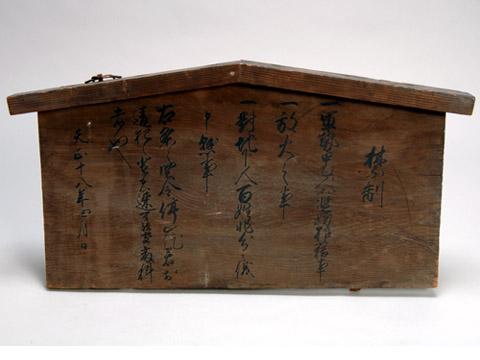 禁制
一軍勢甲乙人等濫妨狼藉事
一放火之事
一對地下人百姓非分之儀
申懸事
右条々堅令停止訖若於
違犯之輩者速可被處嚴科
者也
天正十八年四月日